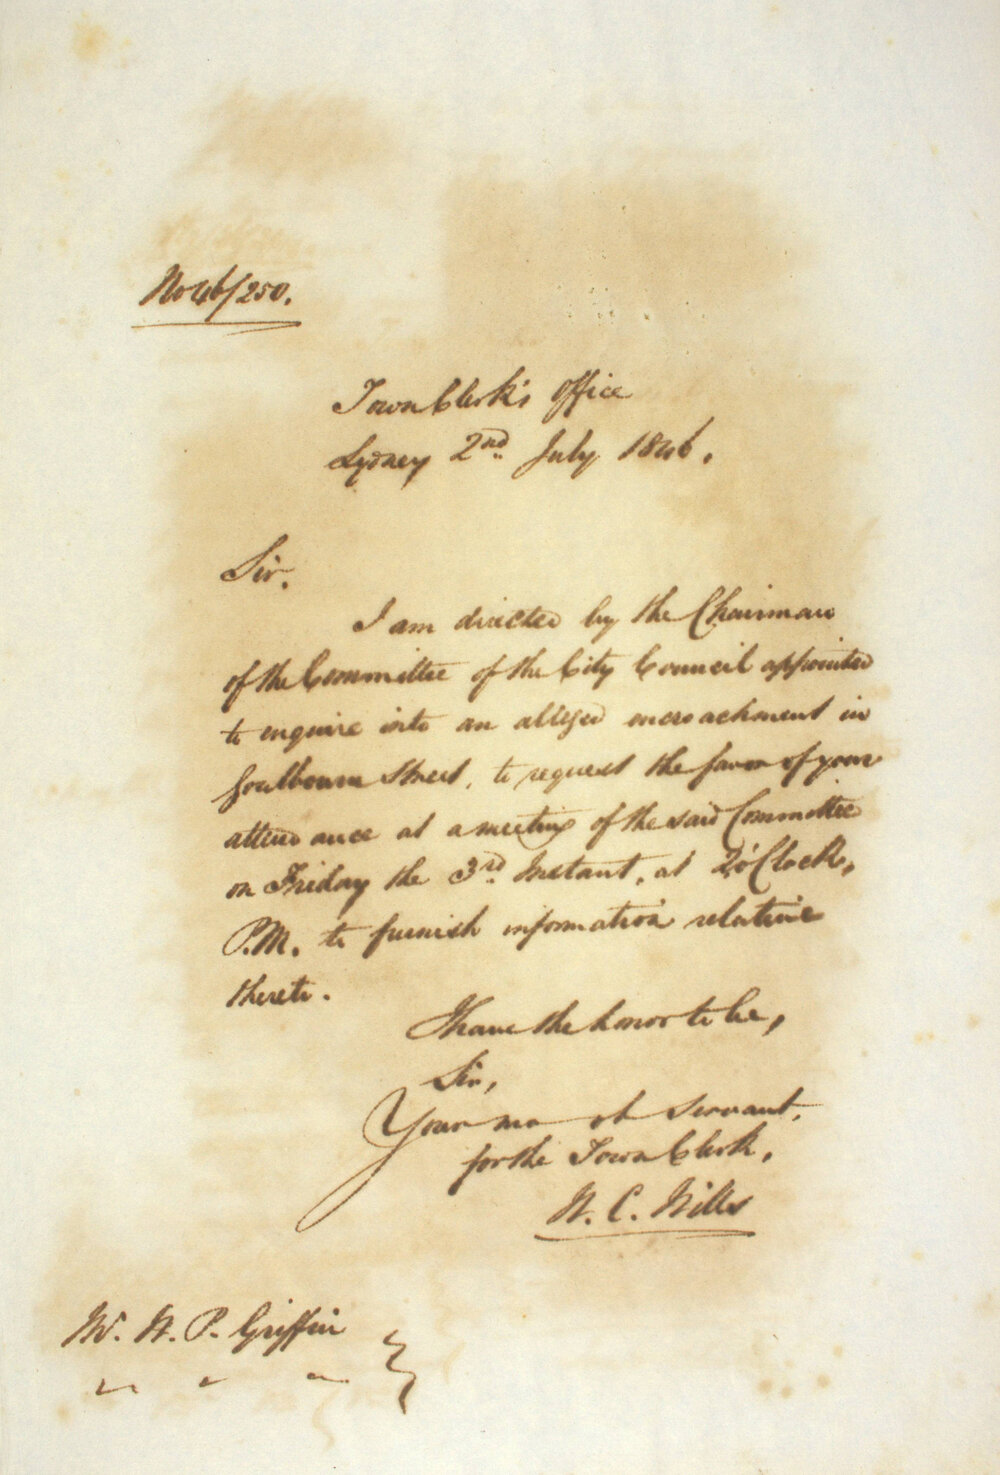 No 46/250.
Town Clerk's Office
Sydney 2nd. July 1846.
Sir.
I am directed by the Chairman
of the Committee of the City Council appointed
to enquire into an alleged encroachment in
Goulbourn Street, to request the favor of your
attendance at a meeting of the said Committee
on Friday the 3rd. Instant, at 2 o'Clock,
P.M. to furnish information relative
thereto.
I have the honor to be,
Sir,
Your mo ob Servant,
for the Town Clerk,
W. C. Wills
Mr. W. P. Griffin